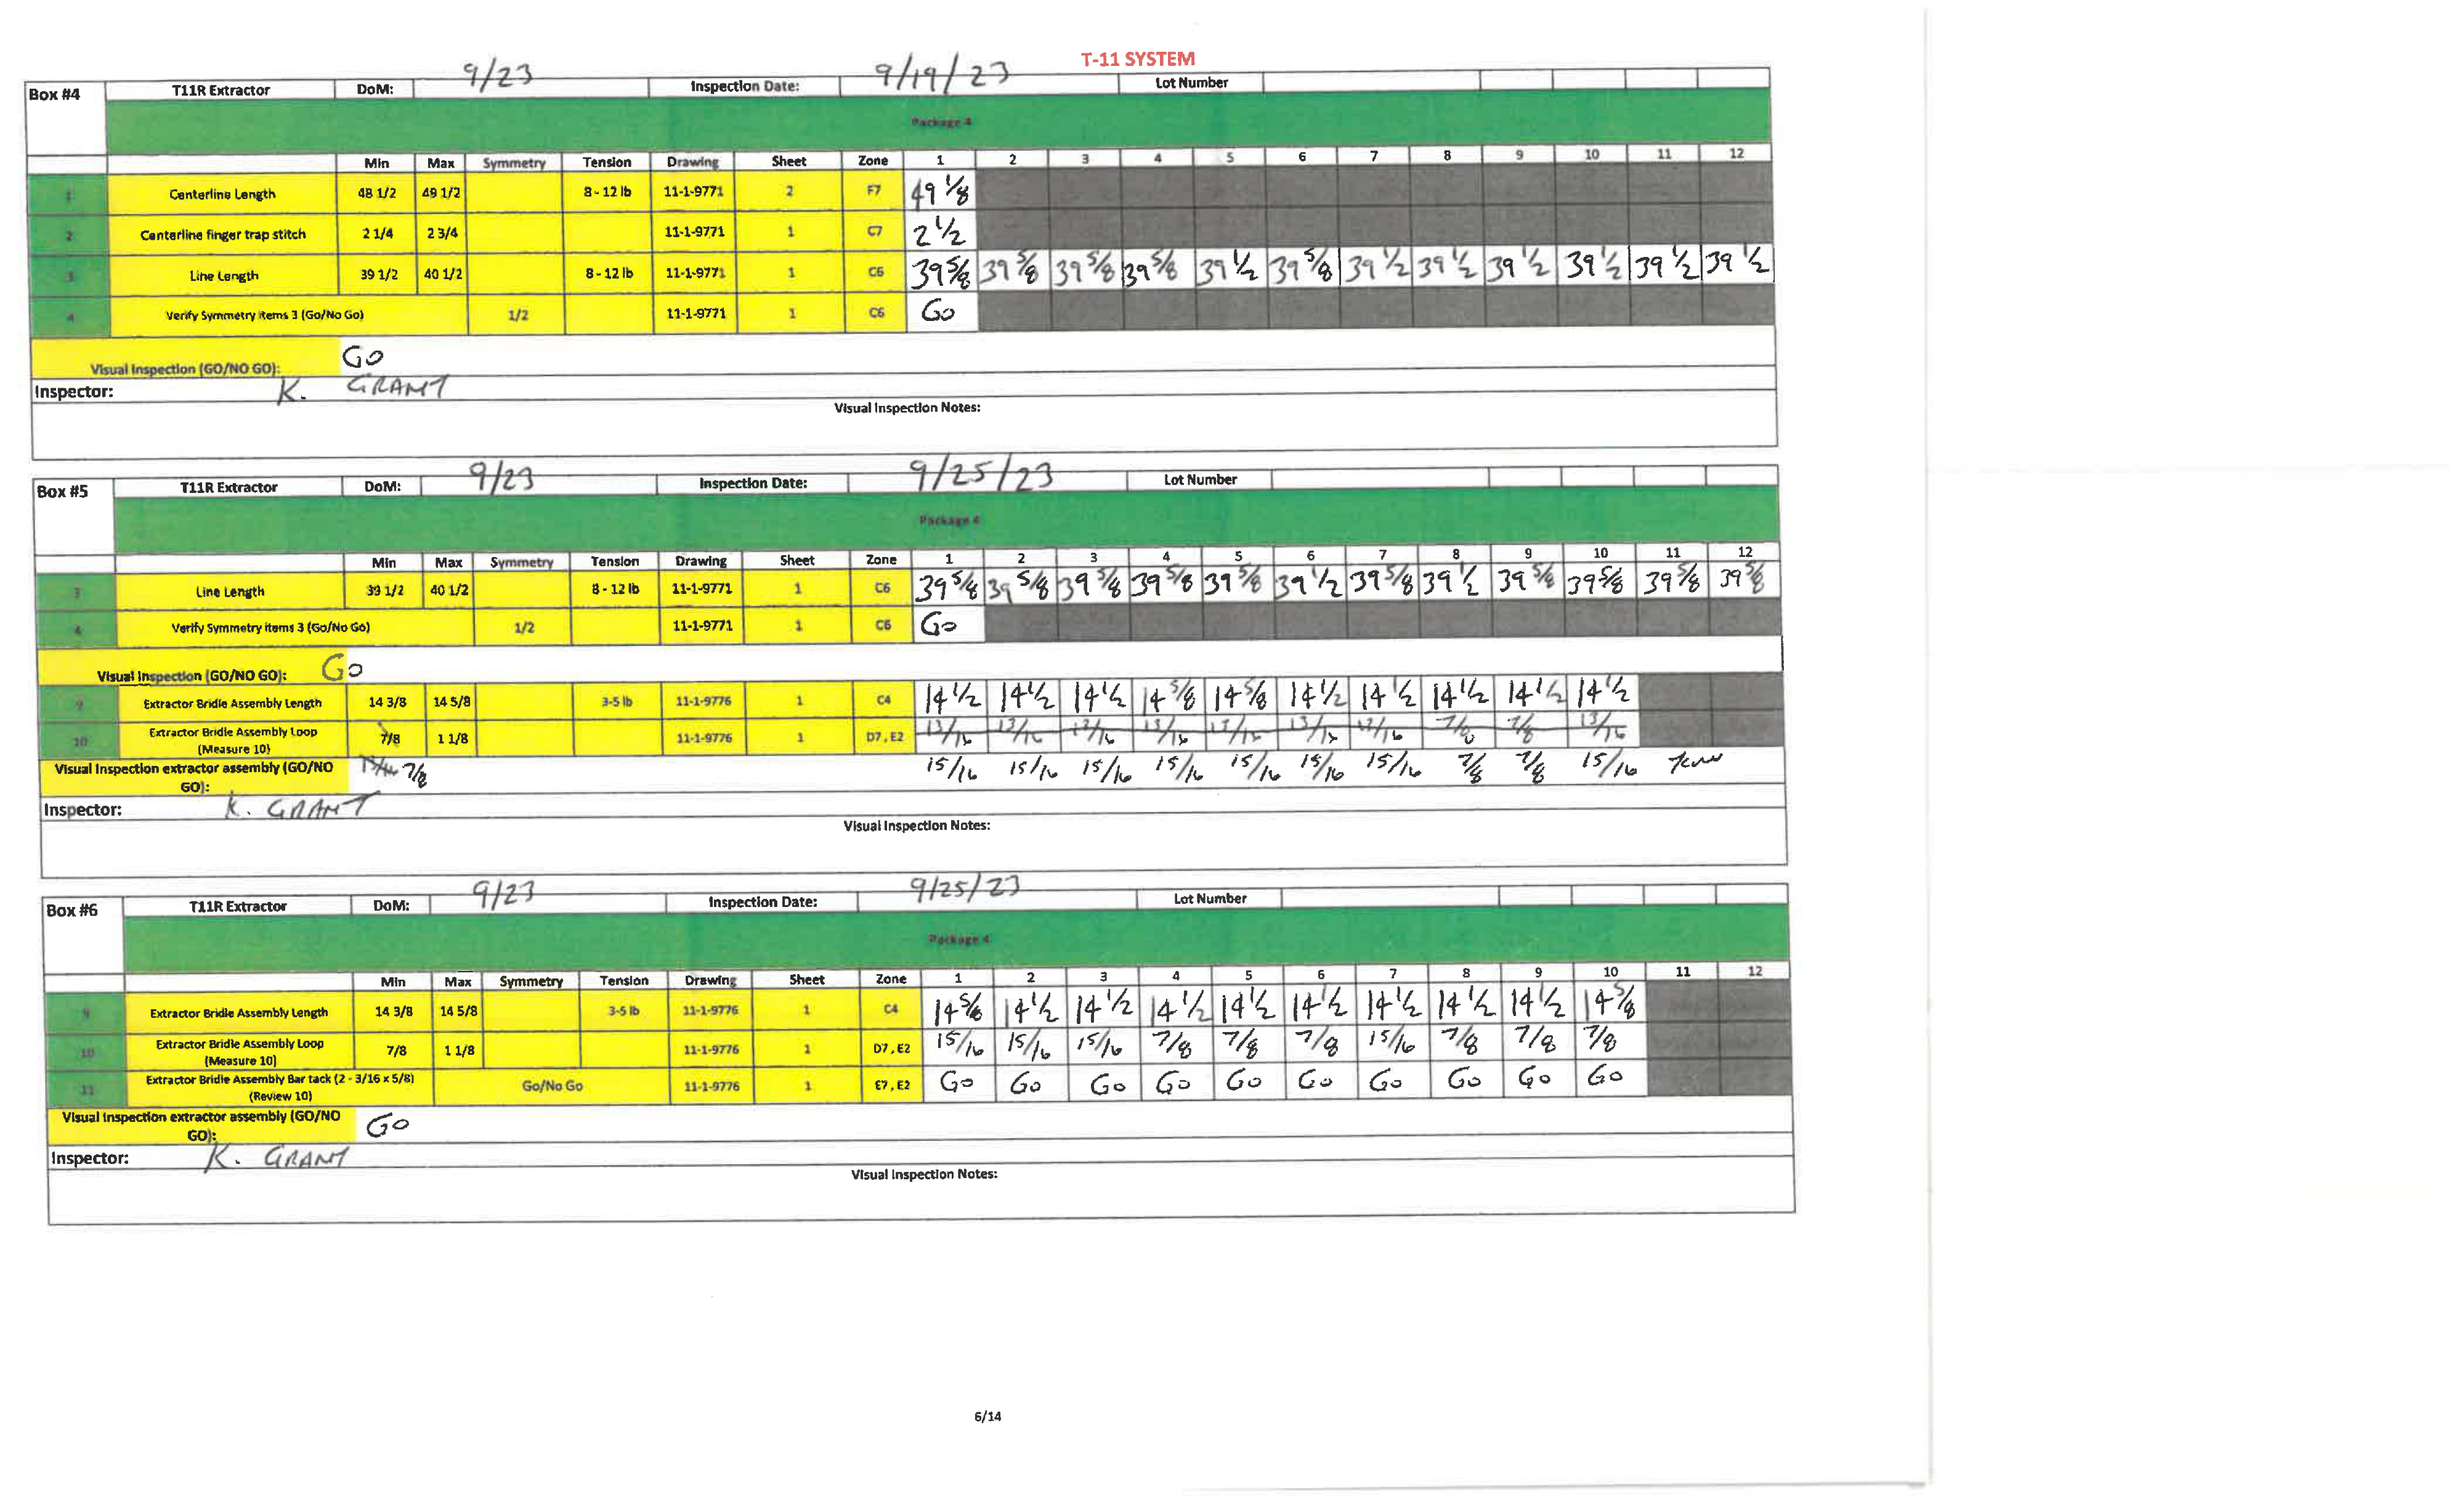 T-11 SYSTEM
Box #4 T11R Extractor DoM: 9/23 Inspection Date: 9/19/23 Lot Number
Package 4
Min Max Symmetry Tension Drawing Sheet Zone 1 2 3 4 5 6 7 8 9 10 11 12
1 Centerline Length 48 1/2 49 1/2 8 - 12 lb 11-1-9771 2 F7 49 1/8
2 Centerline finger trap stitch 2 1/4 2 3/4 11-1-9771 1 C7 2 1/2
3 Line Length 39 1/2 40 1/2 8 - 12 lb 11-1-9771 1 C6 39 5/8 39 5/8 39 5/8 39 5/8 39 1/2 39 5/8 39 1/2 39 1/2 39 1/2 39 1/2 39 1/2 39 1/2
4 Verify Symmetry items 3 (Go/No Go) 1/2 11-1-9771 1 C6 Go
Visual Inspection (GO/NO GO): Go
Inspector: K. GRANT
Visual Inspection Notes:
Box #5 T11R Extractor DoM: 9/23 Inspection Date: 9/25/23 Lot Number
Package 4
Min Max Symmetry Tension Drawing Sheet Zone 1 2 3 4 5 6 7 8 9 10 11 12
3 Line Length 39 1/2 40 1/2 8 - 12 lb 11-1-9771 1 C6 39 5/8 39 5/8 39 5/8 39 5/8 39 5/8 39 1/2 39 5/8 39 1/2 39 5/8 39 5/8 39 5/8 39 5/8
4 Verify Symmetry items 3 (Go/No Go) 1/2 11-1-9771 1 C6 Go
Visual Inspection (GO/NO GO): Go
9 Extractor Bridle Assembly Length 14 3/8 14 5/8 3-5 lb 11-1-9776 1 C4 14 1/2 14 1/2 14 1/2 14 5/8 14 5/8 14 1/2 14 1/2 14 1/2 14 1/2 14 1/2
10 Extractor Bridle Assembly Loop (Measure 10) 7/8 1 1/8 11-1-9776 1 D7, E2 13/16 13/16 13/16 13/16 13/16 13/16 13/16 7/8 7/8 13/16
Visual Inspection extractor assembly (GO/NO GO): 7/8 15/16 15/16 15/16 15/16 15/16 15/16 15/16 7/8 7/8 15/16
Inspector: K. GRANT
Visual Inspection Notes:
Box #6 T11R Extractor DoM: 9/23 Inspection Date: 9/25/23 Lot Number
Package 4
Min Max Symmetry Tension Drawing Sheet Zone 1 2 3 4 5 6 7 8 9 10 11 12
9 Extractor Bridle Assembly Length 14 3/8 14 5/8 3-5 lb 11-1-9776 1 C4 14 5/8 14 1/2 14 1/2 14 1/2 14 1/2 14 1/2 14 1/2 14 1/2 14 1/2 14 5/8
10 Extractor Bridle Assembly Loop (Measure 10) 7/8 1 1/8 11-1-9776 1 D7, E2 15/16 15/16 15/16 7/8 7/8 7/8 15/16 7/8 7/8 7/8
11 Extractor Bridle Assembly Bar tack (2 - 3/16 x 5/8) (Review 10) Go/No Go 11-1-9776 1 E7, E2 Go Go Go Go Go Go Go Go Go Go
Visual Inspection extractor assembly (GO/NO GO): Go
Inspector: K. GRANT
Visual Inspection Notes:
6/14